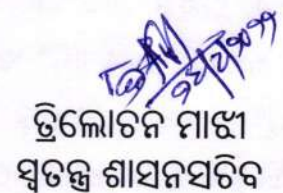 ତ୍ରିଲୋଚନ ମାଝୀ
ସ୍ୱତନ୍ତ୍ର ଶାସନସଚିବ